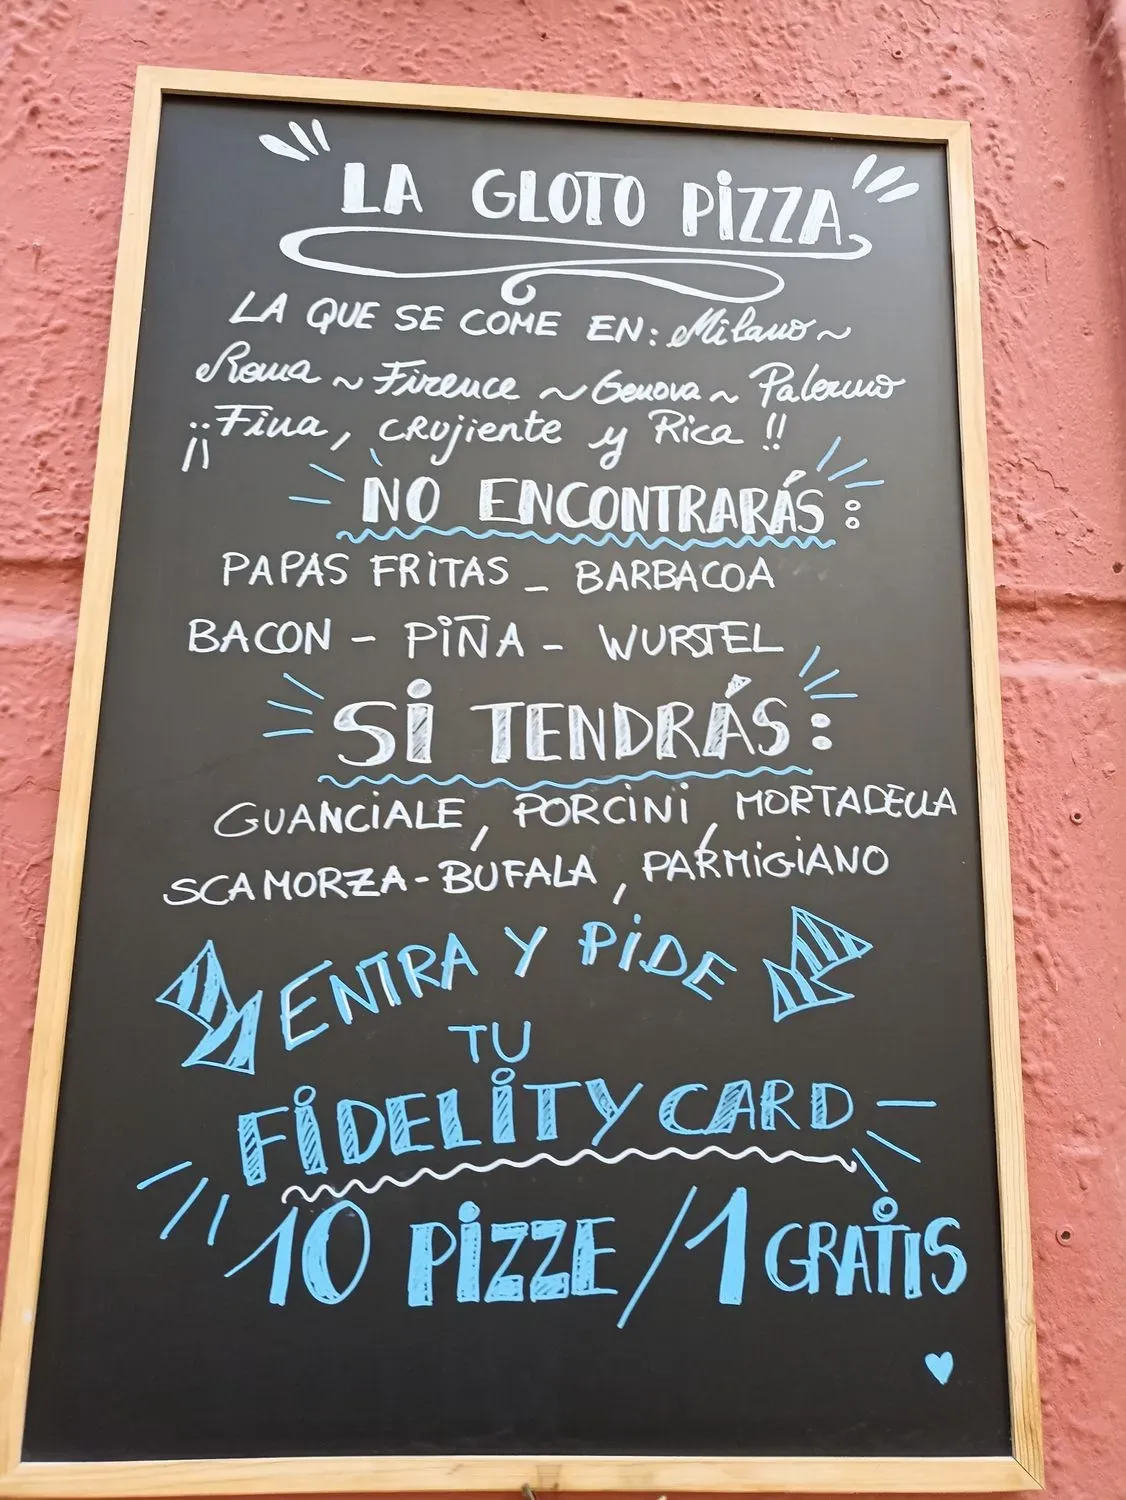 LA GLOTO PIZZA
LA QUE SE COME EN: Milano ~
Roma ~ Firence ~ Genova ~ Palermo
¡¡Fina, CRUJiente y Rica !!
NO ENCONTRARÁS:
PAPAS FRITAS _ BARBACOA
BACON - PIÑA - WURSTEL
SI TENDRÁS:
GUANCIALE, PORCINI, MORTADELLA
SCAMORZA - BUFALA, PARMIGIANO
ENTRA Y PIDE
TU
FIDELITY CARD
10 PIZZE / 1 GRATIS